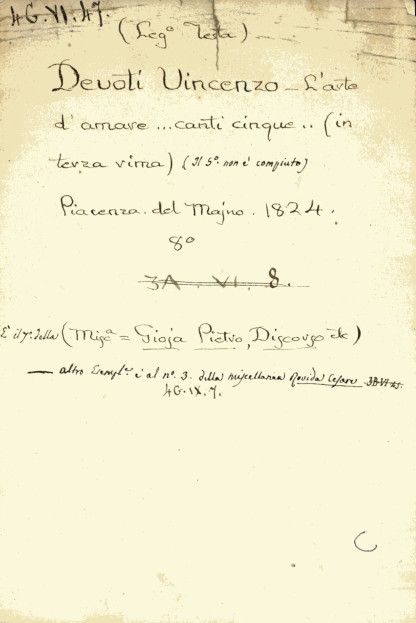 4G.VI.47.
(Legº Testa)
Devoti Vincenzo - L'arte
d'amare ... canti cinque .. (in
terza rima) (Il 5º non è compiuto)
Piacenza. del Majno. 1824.
8º
3A. VI. 8.
È il 7º della (Miscª = Gioja Pietro, Discorso etc)
— altro Esempl.e è al nº. 3. della miscellanea Rovida Cesare 3B VI
4G.IX.7.
C